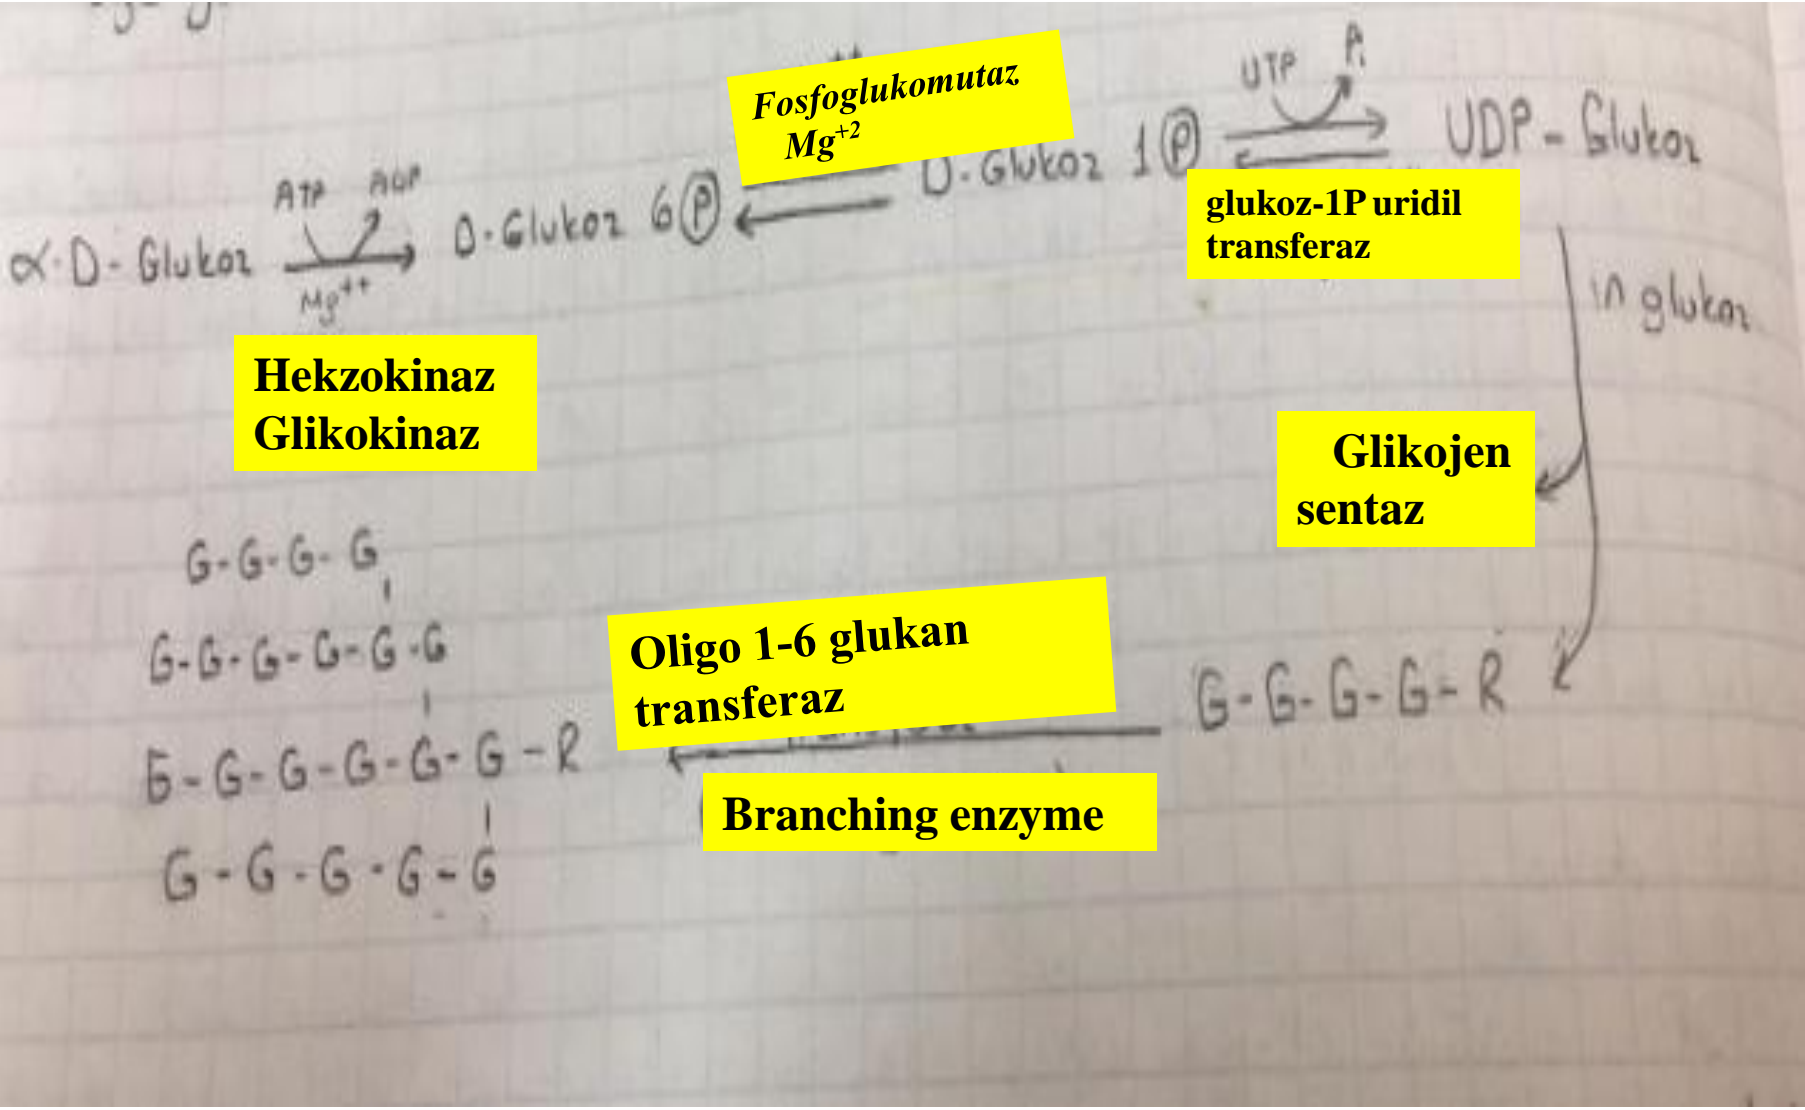 Fosfoglukomutaz
Mg+2
UTP Pi
ATP ADP
α-D-Glukoz
Mg++
D-Glukoz 6 P
D-Glukoz 1 P
UDP-Glukoz
glukoz-1P uridil
transferaz
in glukoz
Hekzokinaz
Glikokinaz
Glikojen
sentaz
G-G-G-G
G-G-G-G-G-G
Oligo 1-6 glukan
transferaz
G-G-G-G-R
G-G-G-G-G-G-R
Branching enzyme
G-G-G-G-G